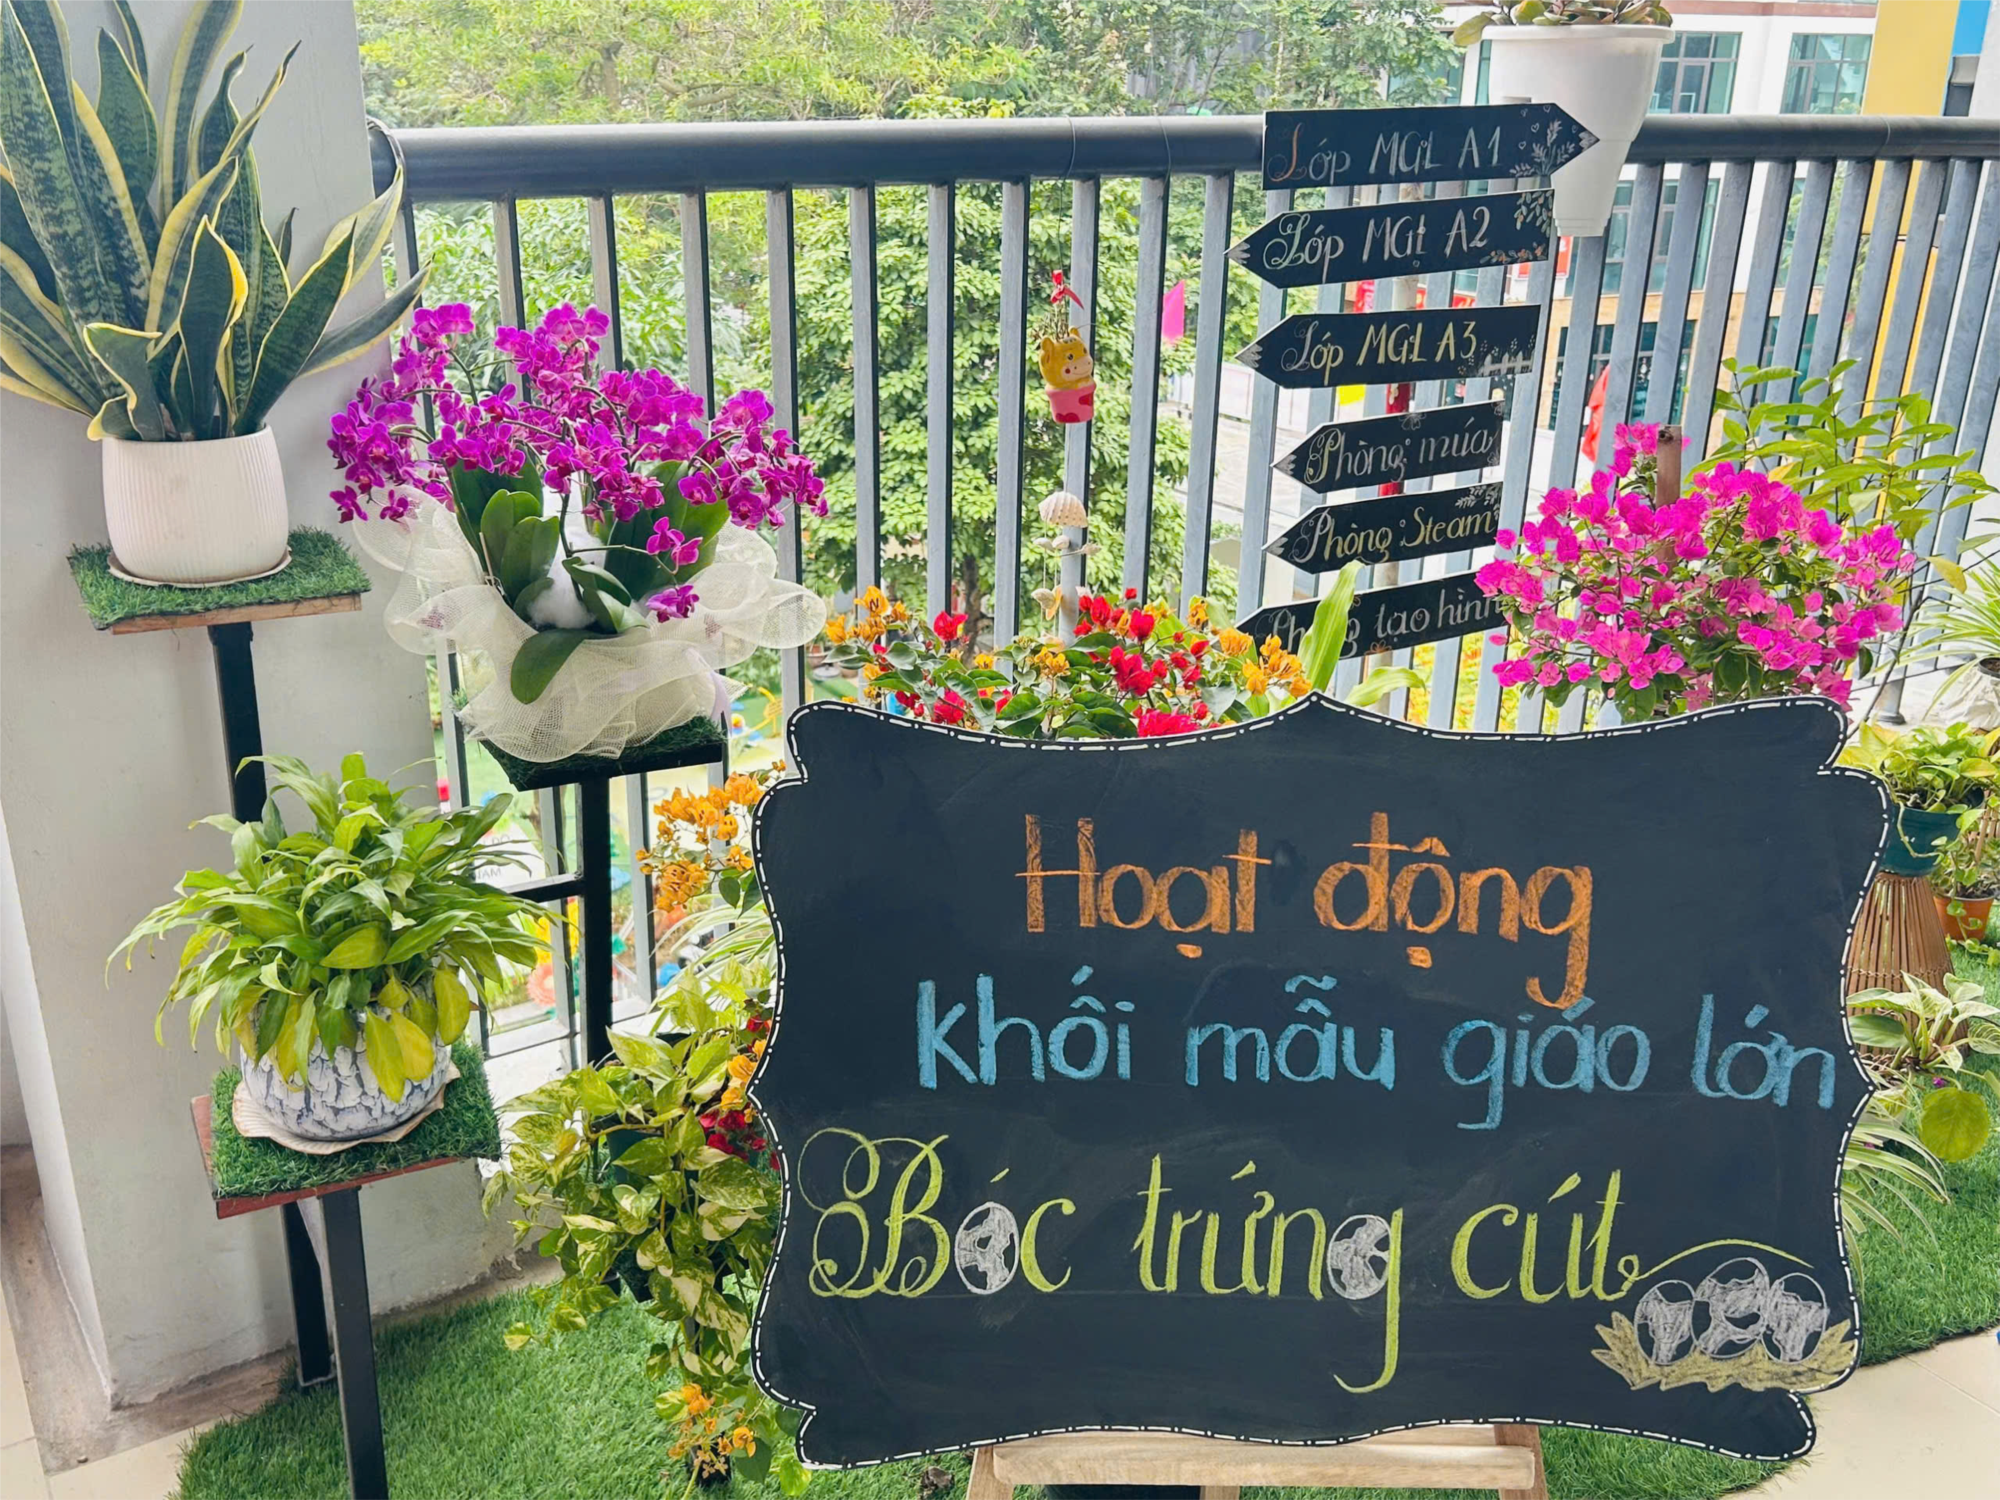 Lớp MGL A1
Lớp MGL A2
Lớp MGL A3
Phòng múa
Phòng Steam
Phòng tạo hình
Hoạt động
khối mẫu giáo lớn
Bóc trứng cút